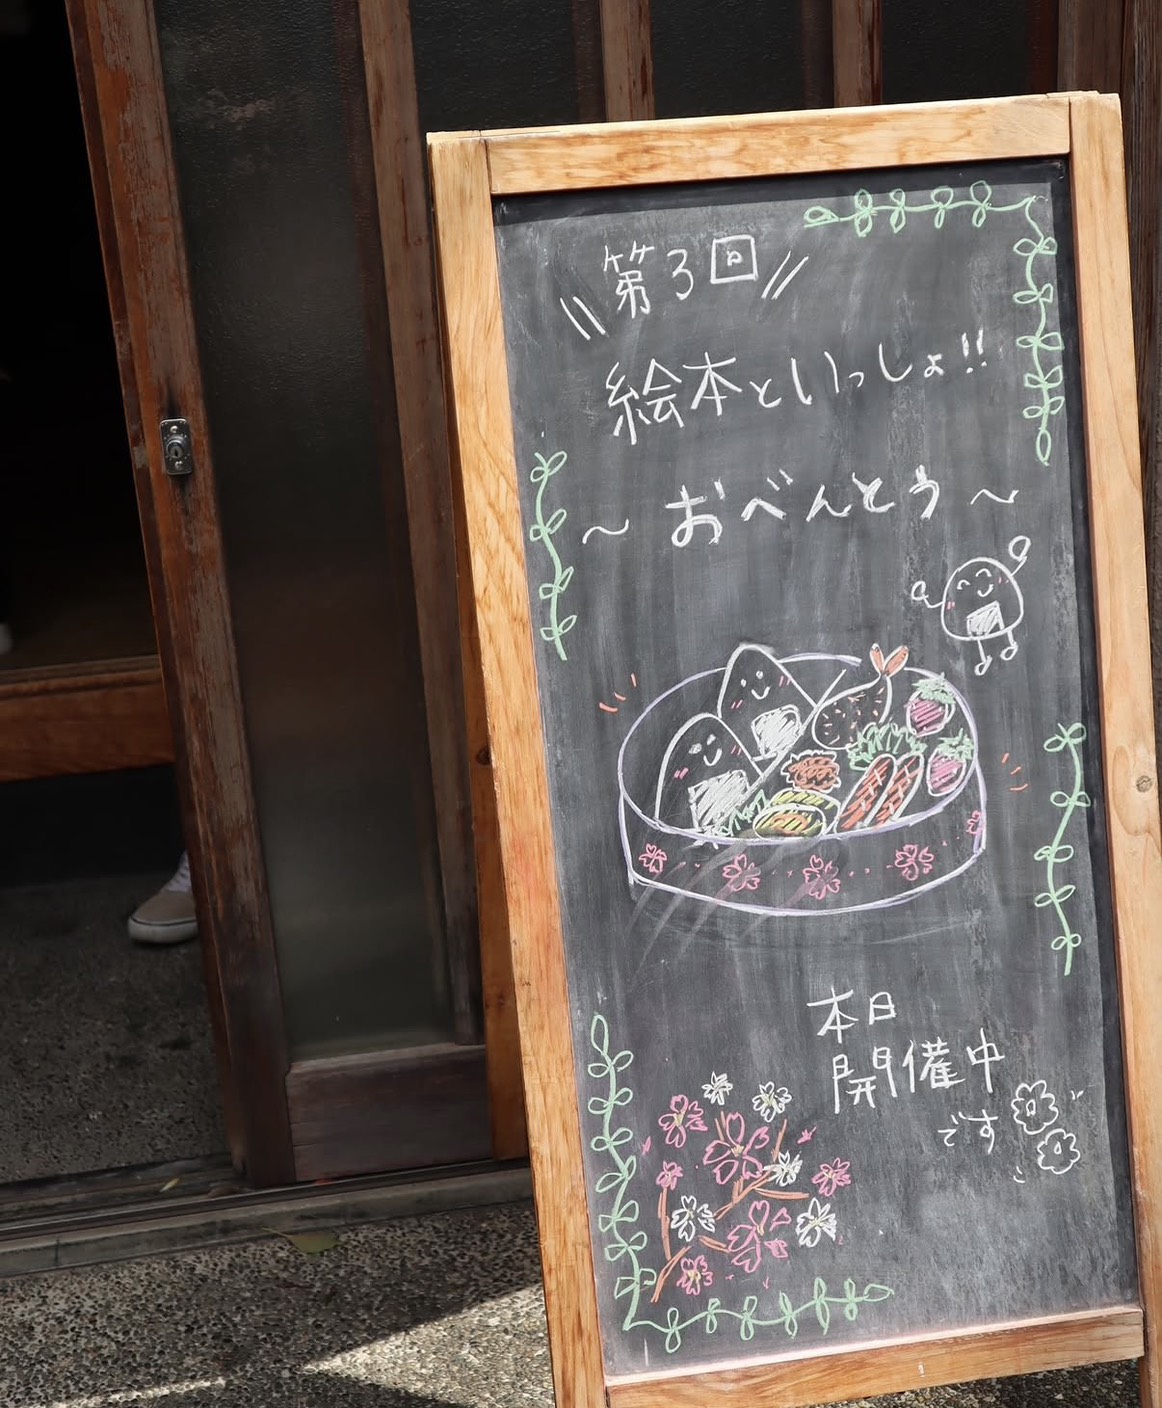 第3回
絵本といっしょ!!
～おべんとう～
本日
開催中
です